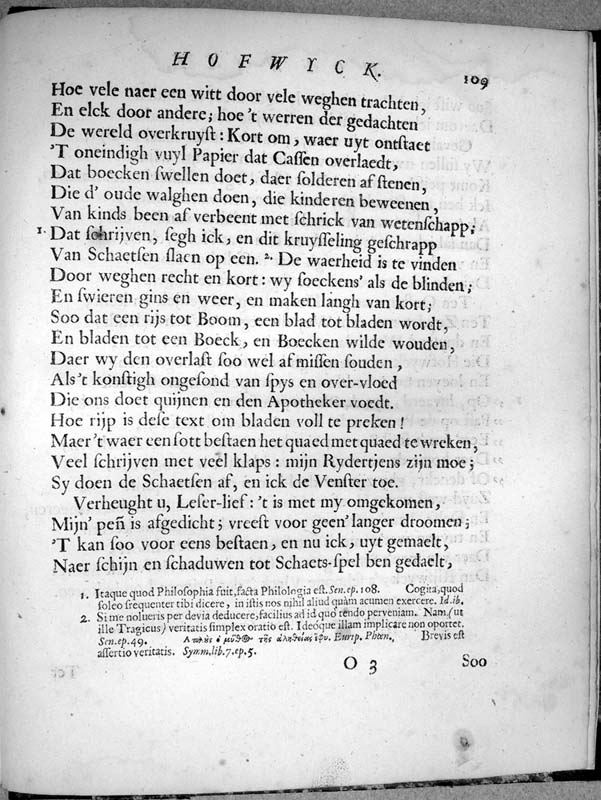 HOFWYCK. 109
Hoe vele naer een witt door vele weghen trachten,
En elck door andere; hoe 't werren der gedachten
De wereld overkruyſt: Kort om, waer uyt ontſtaet
'T oneindigh vuyl Papier dat Caſſen overlaedt,
Dat boecken ſwellen doet, daer ſolderen af ſtenen,
Die d' oude walghen doen, die kinderen beweenen,
Van kinds been af verbeent met ſchrick van wetenſchapp;
1. Dat ſchrijven, ſegh ick, en dit kruyſſeling geſchrapp
Van Schaetſen ſlaen op een. 2. De waerheid is te vinden
Door weghen recht en kort: wy ſoeckens' als de blinden;
En ſwieren gins en weer, en maken langh van kort;
Soo dat een rijs tot Boom, een blad tot bladen wordt,
En bladen tot een Boeck, en Boecken wilde wouden,
Daer wy den overlaſt ſoo wel af miſſen ſouden,
Als't konſtigh ongeſond van ſpys en over-vloed
Die ons doet quijnen en den Apotheker voedt.
Hoe rijp is deſe text om bladen voll te preken!
Maer 't waer een ſott beſtaen het quaed met quaed te wreken,
Veel ſchrijven met veel klaps: mijn Rydertjens zijn moe;
Sy doen de Schaetſen af, en ick de Venſter toe.
Verheught u, Leſer-lief: 't is met my omgekomen,
Mijn' peñ is afgedicht; vreeſt voor geen' langer droomen;
'T kan ſoo voor eens beſtaen, en nu ick, uyt gemaelt,
Naer ſchijn en ſchaduwen tot Schaets-ſpel ben gedaelt,
1. Itaque quod Philoſophia fuit, facta Philologia eſt. Sen. ep. 108. Cogita, quod
ſoleo frequenter tibi dicere, in iſtis nos nihil aliud quàm acumen exercere. Id. ib.
2. Si me nolueris per devia deducere, facilius ad id quo tendo perveniam. Nam (ut
ille Tragicus) veritatis ſimplex oratio eſt. Ideóque illam implicare non oportet.
Sen. ep. 49. Ἁπλοῦς ὁ μῦθος τῆς ἀληθείας ἔφυ. Eurip. Phœn. Brevis eſt
aſſertio veritatis. Symm. lib. 7. ep. 5.
O 3 Soo